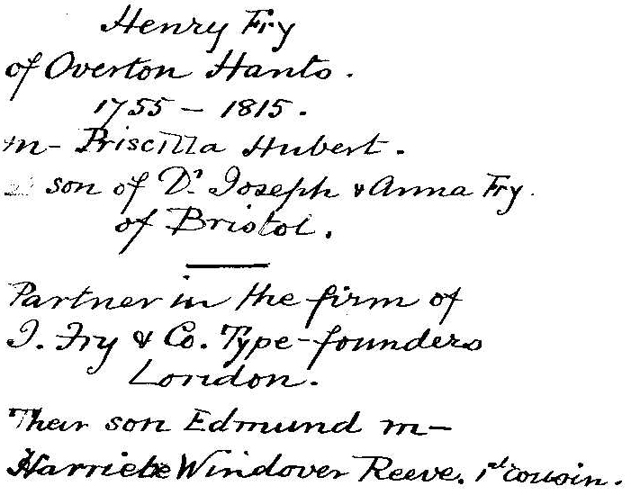 Henry Fry
of Overton Hants.
1755 – 1815.
m- Priscilla Hubert.
son of Dr. Joseph & Anna Fry.
of Bristol.
Partner in the firm of
J. Fry & Co. Type-founders
London.
Their son Edmund m–
Harriete Windover Reeve. 1st cousin.